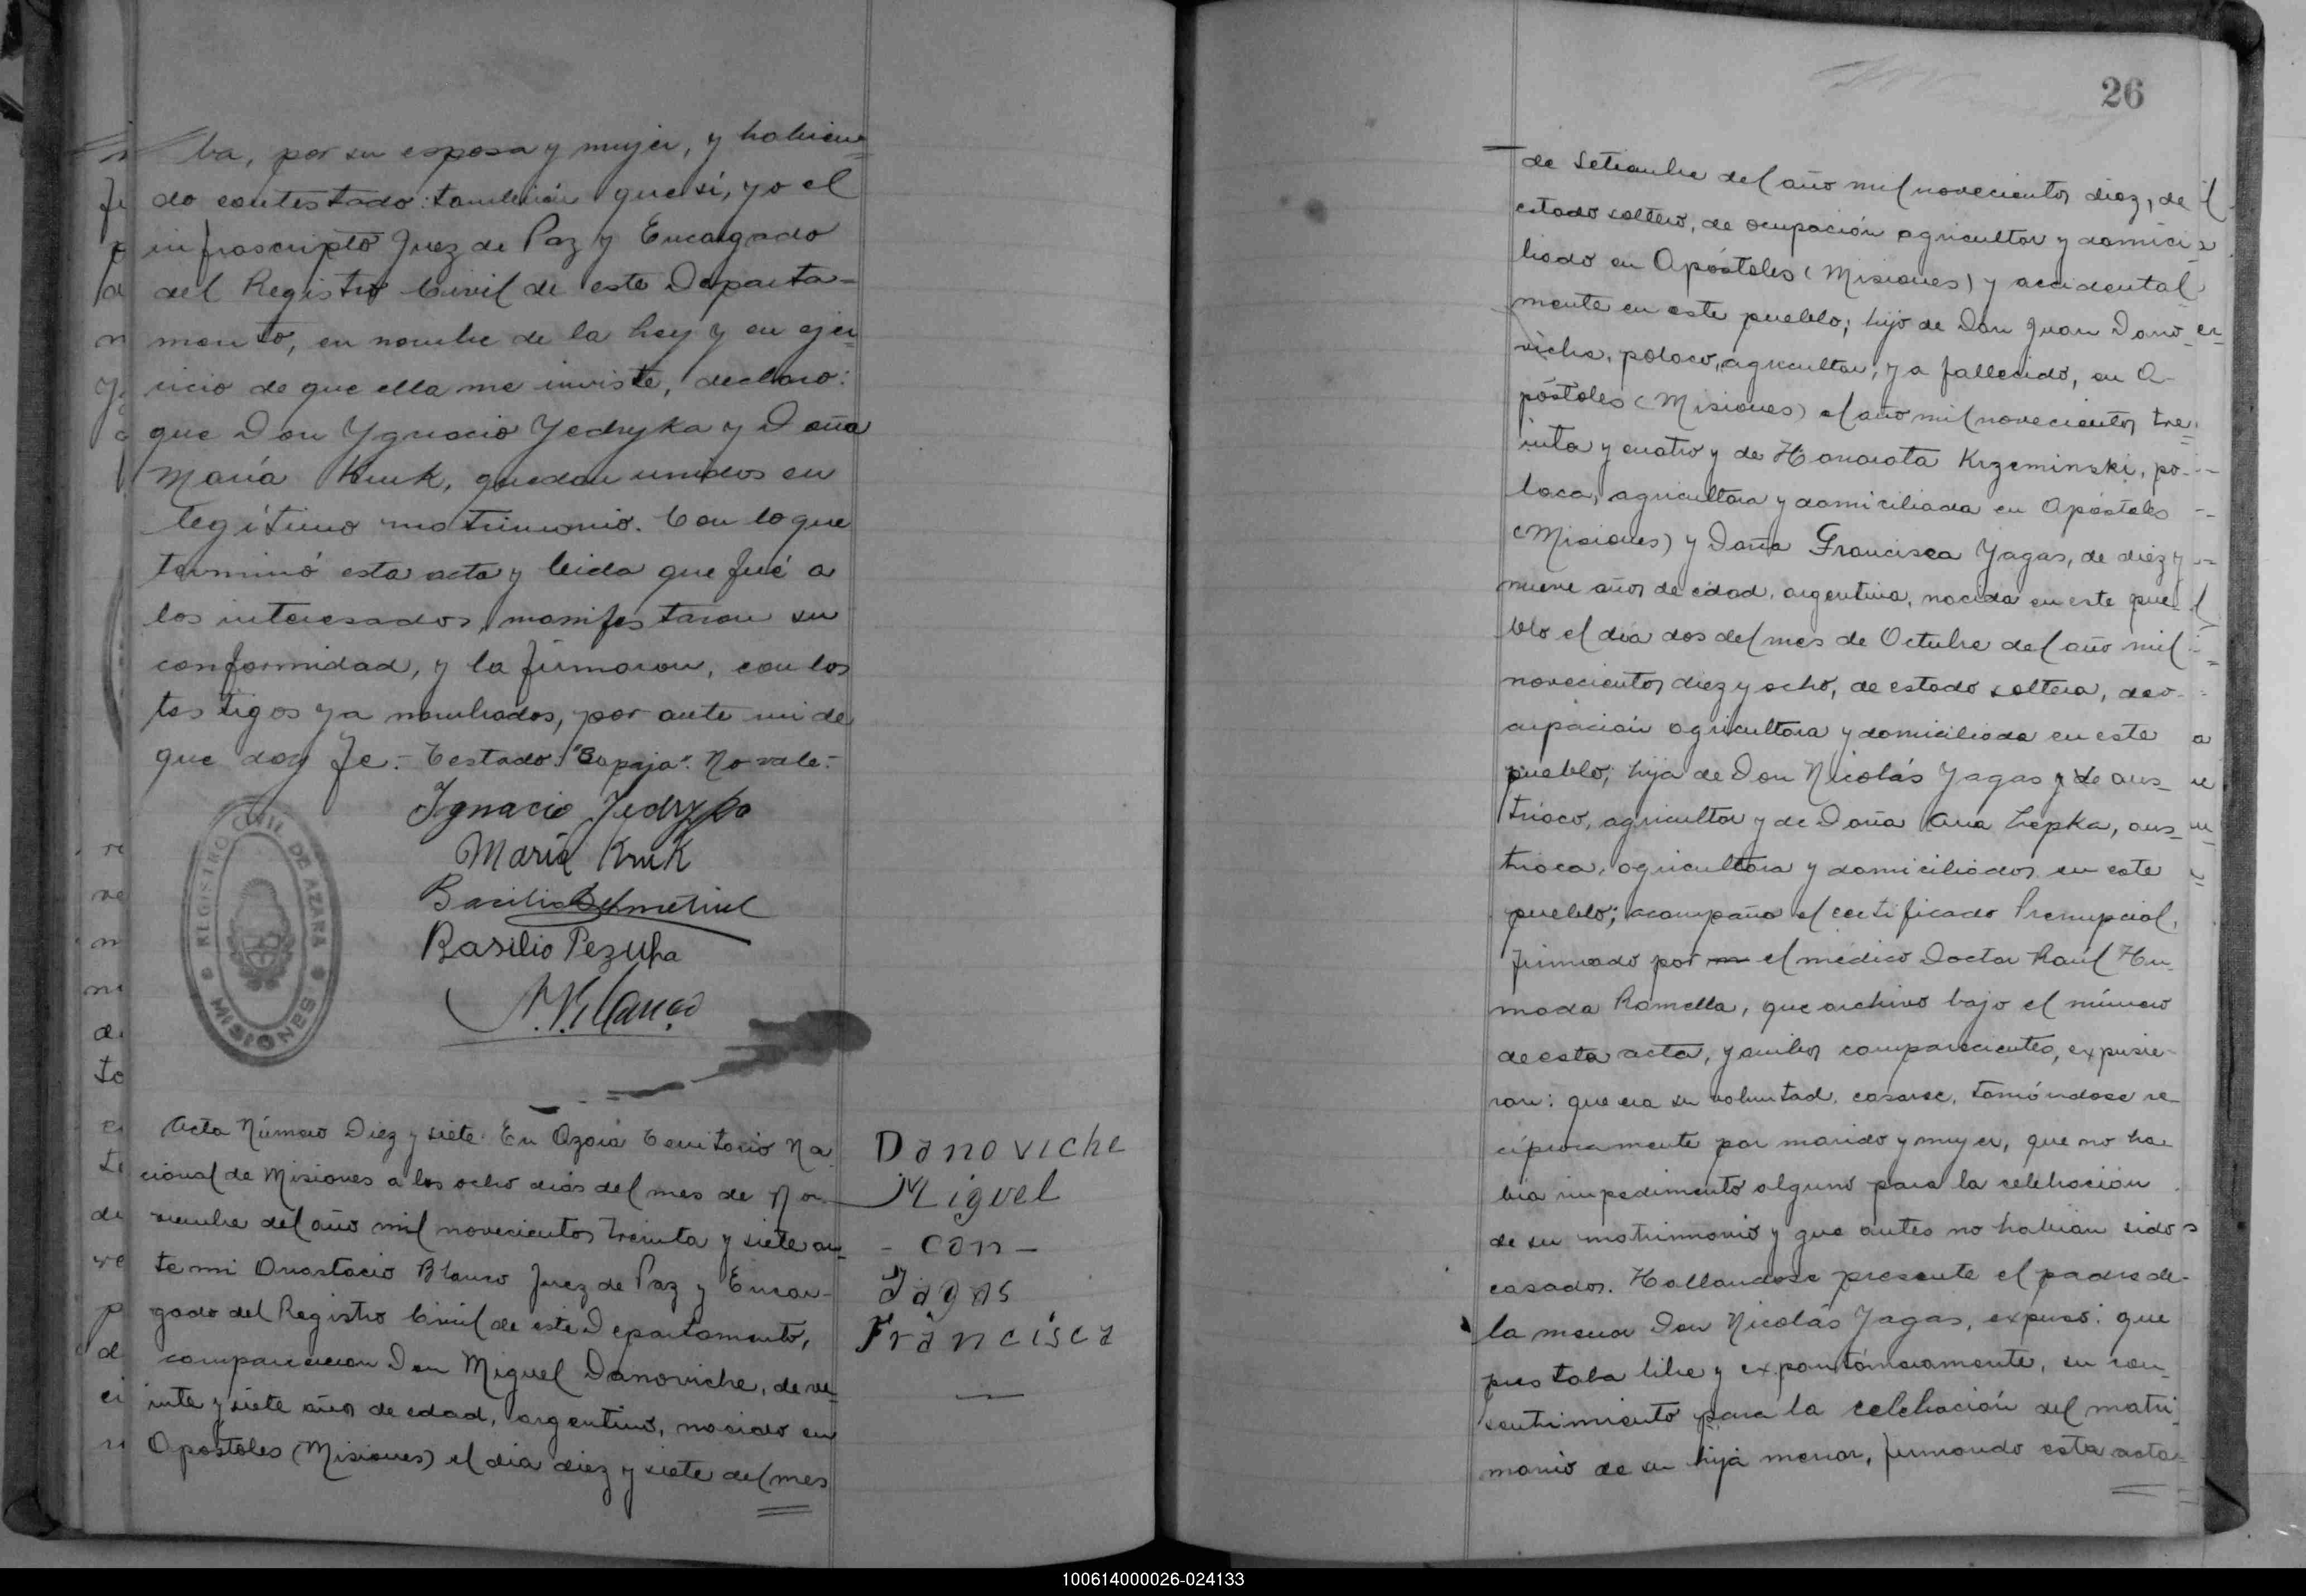 ba, por su esposa y mujer, y habien=
do contestado: también que sí, yo el
infrascripto Juez de Paz y Encargado
del Registro Civil de este Departa-
mento, en nombre de la Ley y en ejer
cicio de que ella me inviste, declaro:
que Don Ygnacio Yedryka y Doña
María Kruk, quedan unidos en
legítimo matrimonio. Con lo que
terminó esta acta y leida que fué a
los interesados, manifestaron su
conformidad, y la firmaron, con los
testigos ya nombrados, por ante mi de
que doy fe.- Testado: No vale.-
Ignacio Jedryka
María Kruk
Basilio
Basilio Pezuha
REGISTRO CIVIL DE AZARA
MISIONES
Acta Número Diez y siete. En Azara Territorio Na
cional de Misiones a los ocho dias del mes de No
viembre del año mil novecientos treinta y siete an
te mi Anastacio Blanco Juez de Paz y Encar-
gado del Registro Civil de este Departamento,
comparecieron Don Miguel Danoviche, de ve
inte y siete años de edad, argentino, nacido en
Apóstoles (Misiones) el dia diez y siete del mes
Danoviche
Miguel
- con -
Jagas
Francisca
26
de Setiembre del año mil novecientos diez, de
estado soltero, de ocupación agricultor y domici
liado en Apóstoles (Misiones) y accidental
mente en este pueblo; hijo de Don Juan Dano
viche, polaco, agricultor, ya fallecido, en A-
póstoles (Misiones) el año mil novecientos tre
inta y cuatro y de Honorata Krzeminski, po-
laca, agricultora y domiciliada en Apóstoles
(Misiones) y Doña Francisca Yagas, de diez y
nueve años de edad, argentina, nacida en este pue
blo el dia dos del mes de Octubre del año mil
novecientos diez y ocho, de estado soltera, de o-
cupación agricultora y domiciliada en este
pueblo; hija de Don Nicolás Yagas y de aus-
triaco, agricultor y de Doña Ana Lepka, aus-
triaca, agricultora y domiciliados en este
pueblo; acompaña el certificado Prenupcial,
firmado por el médico Doctor Raúl Hu
mada Ramella, que archivo bajo el número
de esta acta, y ambos comparecientes, expusie-
ron: que era su voluntad, casarse, tomándose re
cíprocamente por marido y mujer, que no ha
bia impedimento alguno para la celebración
de su matrimonio y que antes no habian sido
casados. Hallandose presente el padre de
la menor Don Nicolás Yagas, expuso: que
prestaba libre y expontáneamente, su con
sentimiento para la celebración del matri
monio de su hija menor, firmando esta acta
100614000026-024133